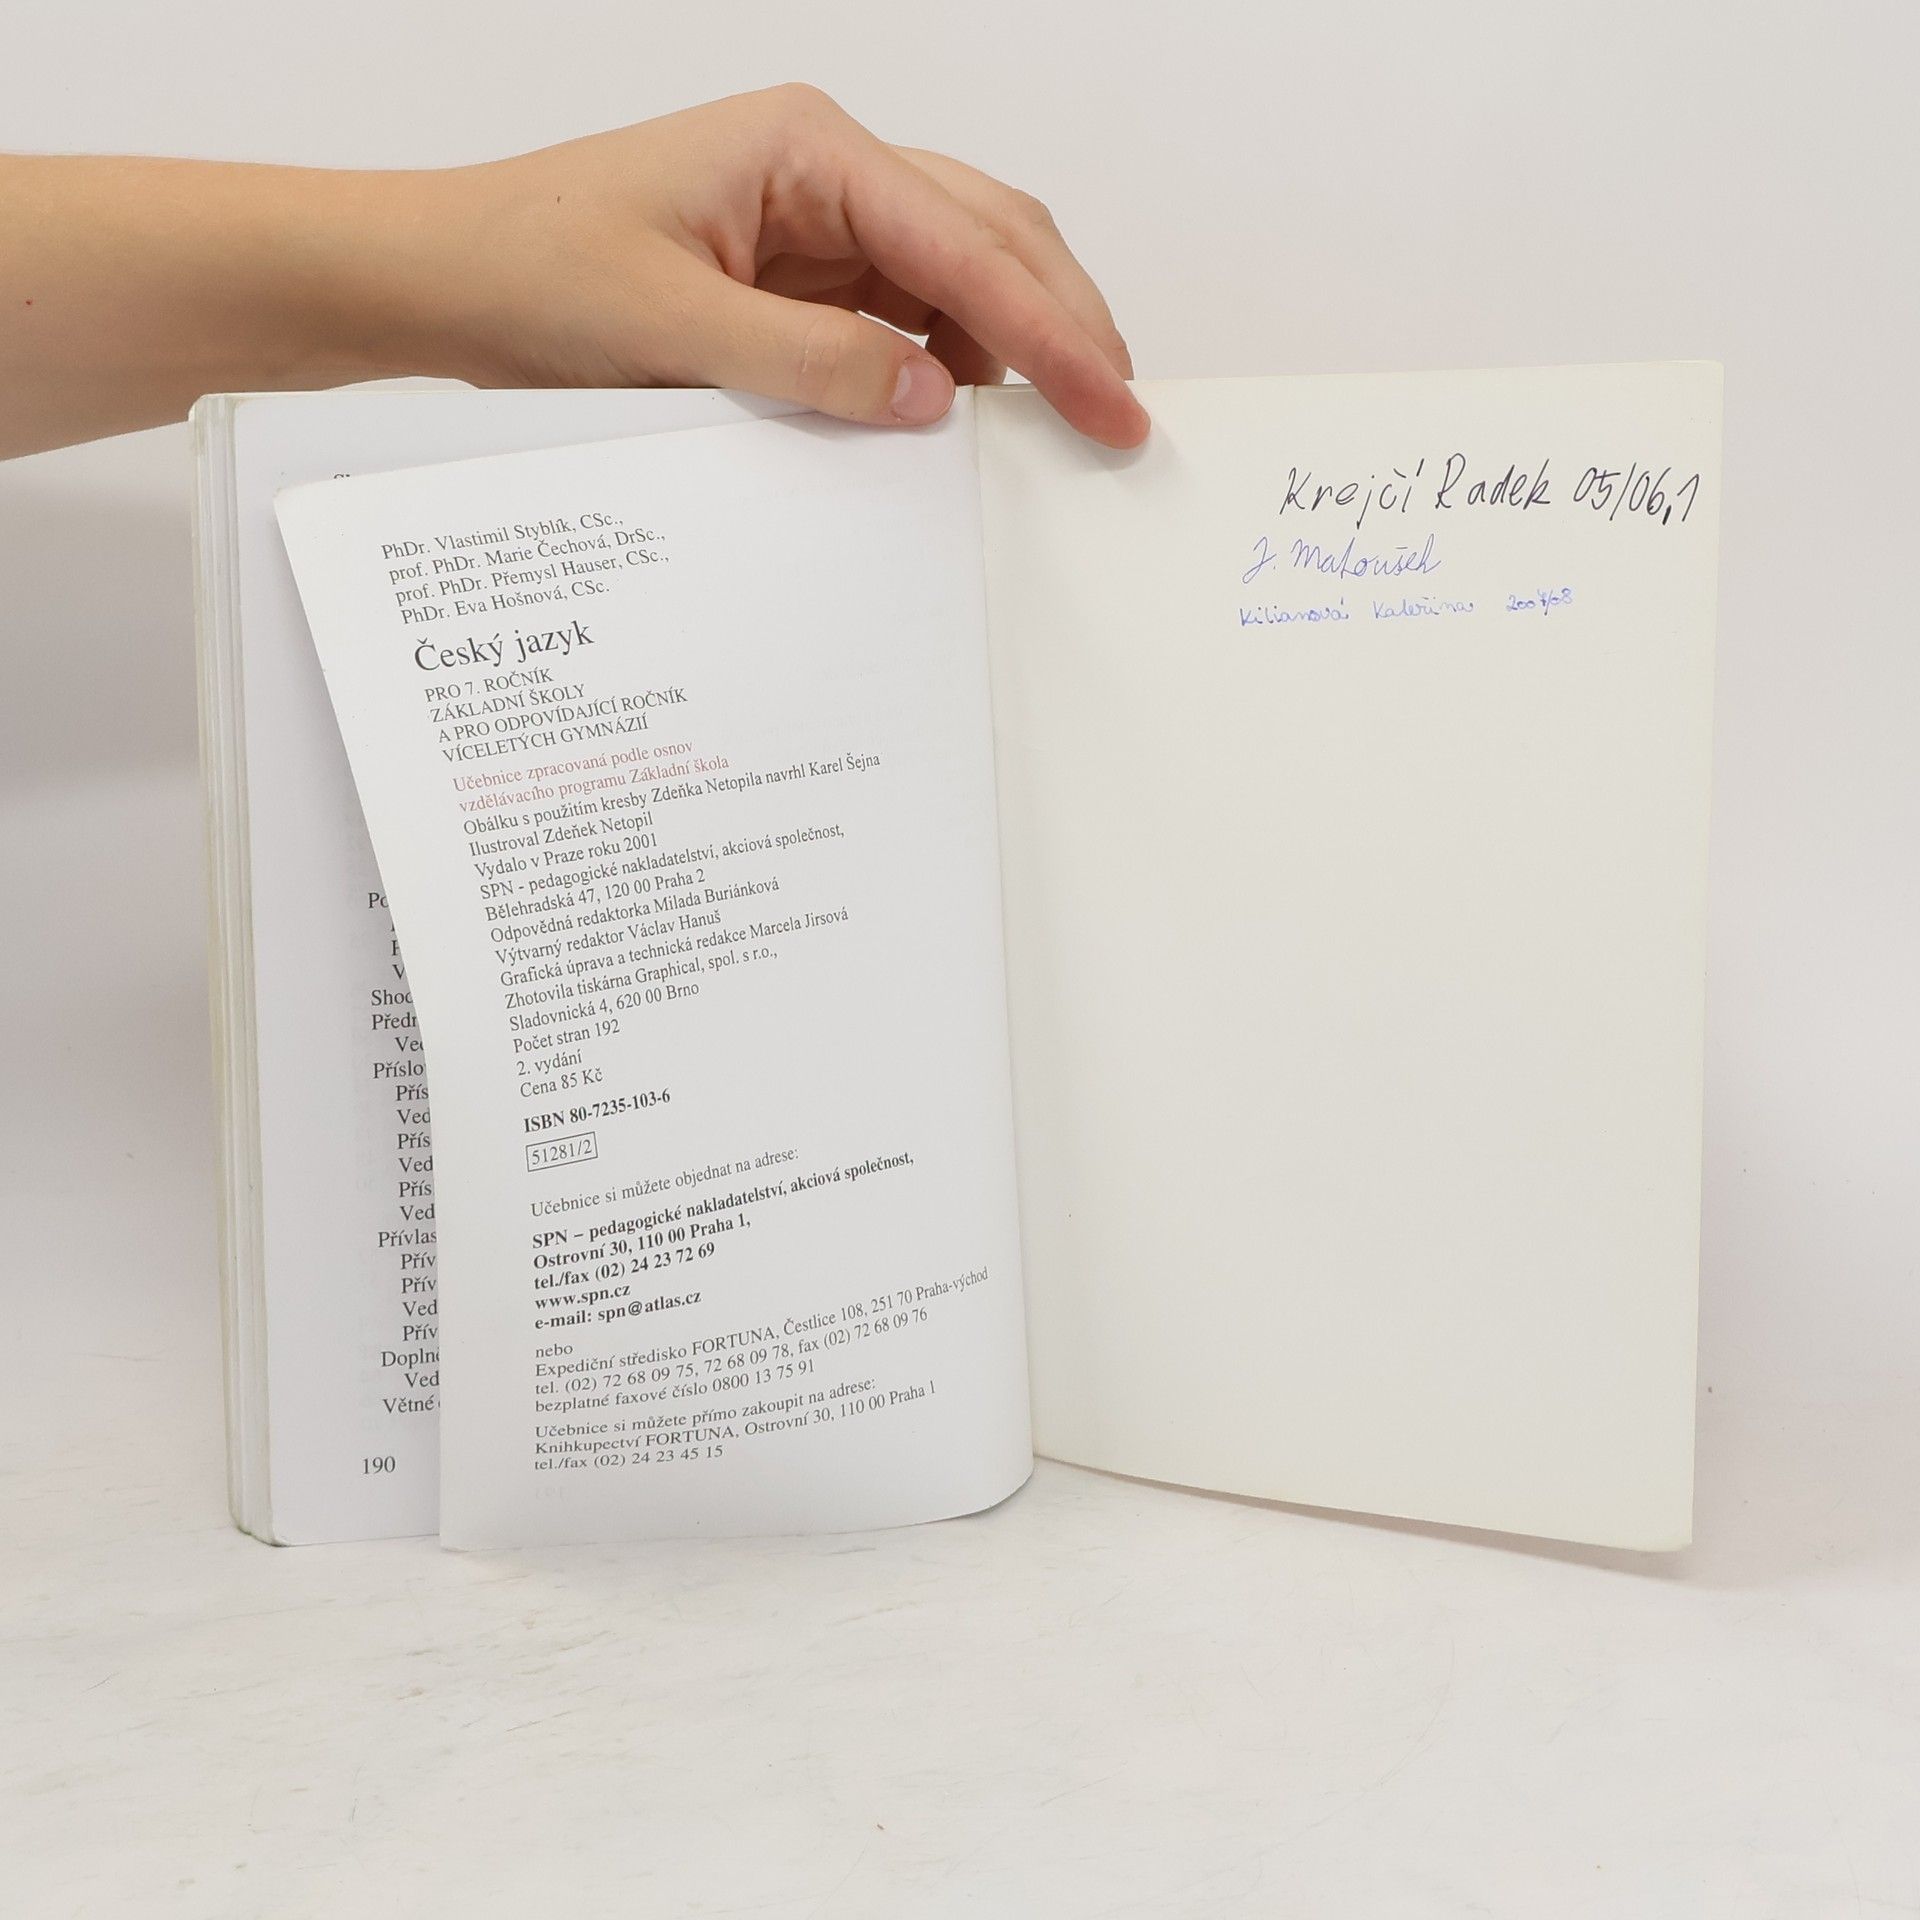 PhDr. Vlastimil Styblík, CSc.,
prof. PhDr. Marie Čechová, DrSc.,
prof. PhDr. Přemysl Hauser, CSc.,
PhDr. Eva Hošnová, CSc.
Český jazyk
PRO 7. ROČNÍK
ZÁKLADNÍ ŠKOLY
A PRO ODPOVÍDAJÍCÍ ROČNÍK
VÍCELETÝCH GYMNÁZIÍ
Učebnice zpracovaná podle osnov
vzdělávacího programu Základní škola
Obálku s použitím kresby Zdeňka Netopila navrhl Karel Šejna
Ilustroval Zdeňek Netopil
Vydalo v Praze roku 2001
SPN - pedagogické nakladatelství, akciová společnost,
Bělehradská 47, 120 00 Praha 2
Odpovědná redaktorka Milada Buriánková
Výtvarný redaktor Václav Hanuš
Grafická úprava a technická redakce Marcela Jirsová
Zhotovila tiskárna Graphical, spol. s r.o.,
Sladovnická 4, 620 00 Brno
Počet stran 192
2. vydání
Cena 85 Kč
ISBN 80-7235-103-6
51281/2
Učebnice si můžete objednat na adrese:
SPN – pedagogické nakladatelství, akciová společnost,
Ostrovní 30, 110 00 Praha 1,
tel./fax (02) 24 23 72 69
www.spn.cz
e-mail: spn@atlas.cz
nebo
Expediční středisko FORTUNA, Čestlice 108, 251 70 Praha-východ
tel. (02) 72 68 09 75, 72 68 09 78, fax (02) 72 68 09 76
bezplatné faxové číslo 0800 13 75 91
Učebnice si můžete přímo zakoupit na adrese:
Knihkupectví FORTUNA, Ostrovní 30, 110 00 Praha 1
tel./fax (02) 24 23 45 15
Shod
Předn
Ved
Příslo
Přís
Ved
Přís
Ved
Přís
Ved
Přívlas
Přív
Přív
Ved
Přív
Doplně
Ved
Větné
190
Krejčí Radek 05/06,1
J. Matoušek
Kilianová Kateřina 2007/08